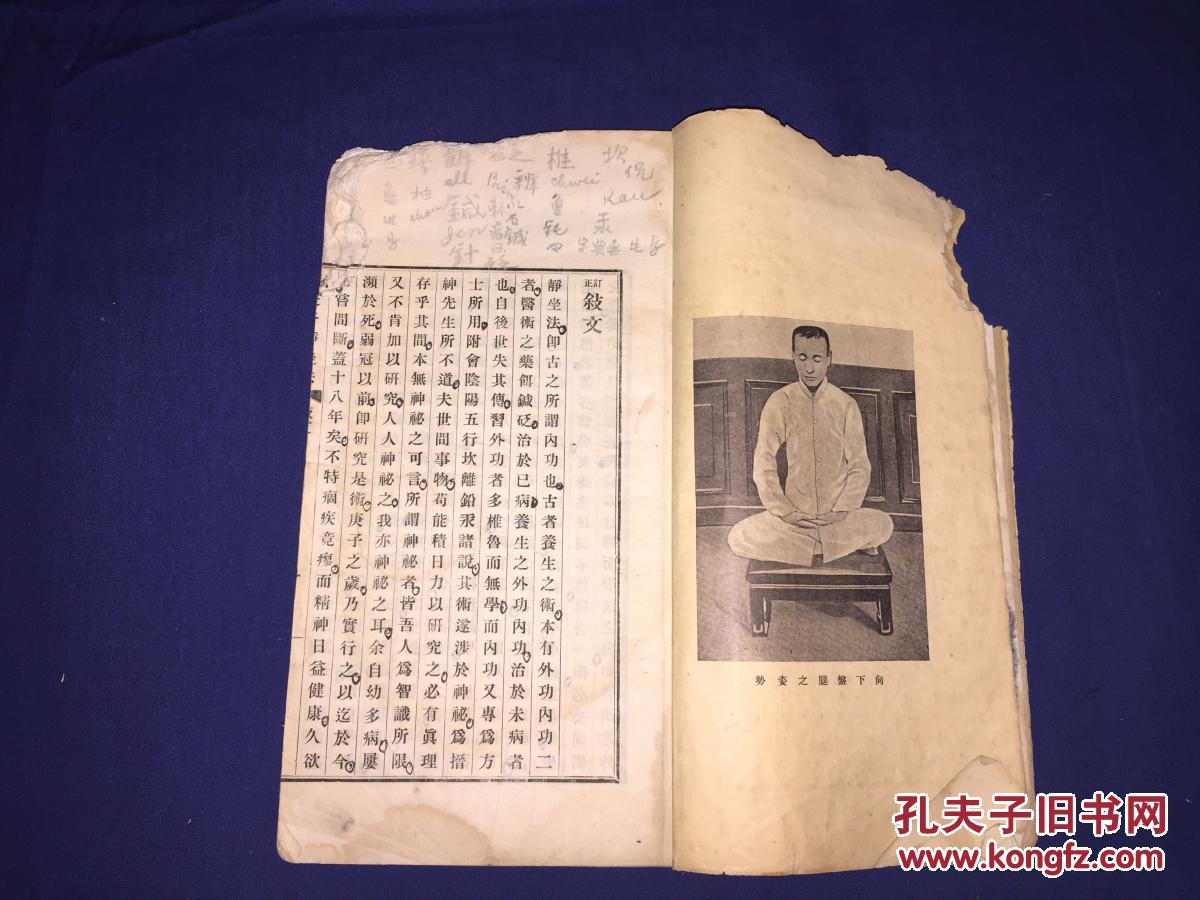 向下盤腿之姿勢
訂正
敍文
靜坐法即古之所謂內功也古者養生之術本有外功內功二
者醫術之藥餌鍼砭治於已病養生之外功內功治於未病者
也自後世失其傳習外功者多椎魯而無學而內功又專爲方
士所用附會陰陽五行坎離鉛汞諸說其術遂涉於神祕爲搢
神先生所不道夫世間事物苟能積日力以研究之必有眞理
存乎其間本無神祕之可言所謂神祕者皆吾人爲智識所限
又不肯加以研究人人神祕之我亦神祕之耳余自幼多病屢
瀕於死弱冠以前卽硏究是術庚子之歲乃實行之以迄於今
嘗間斷蓋十八年矣不特痼疾竟瘳而精神日益健康久欲
坎 侃
Kan
椎
chwei
魯
鈍
字典
鍼
針
柚
孔夫子旧书网
www.kongfz.com